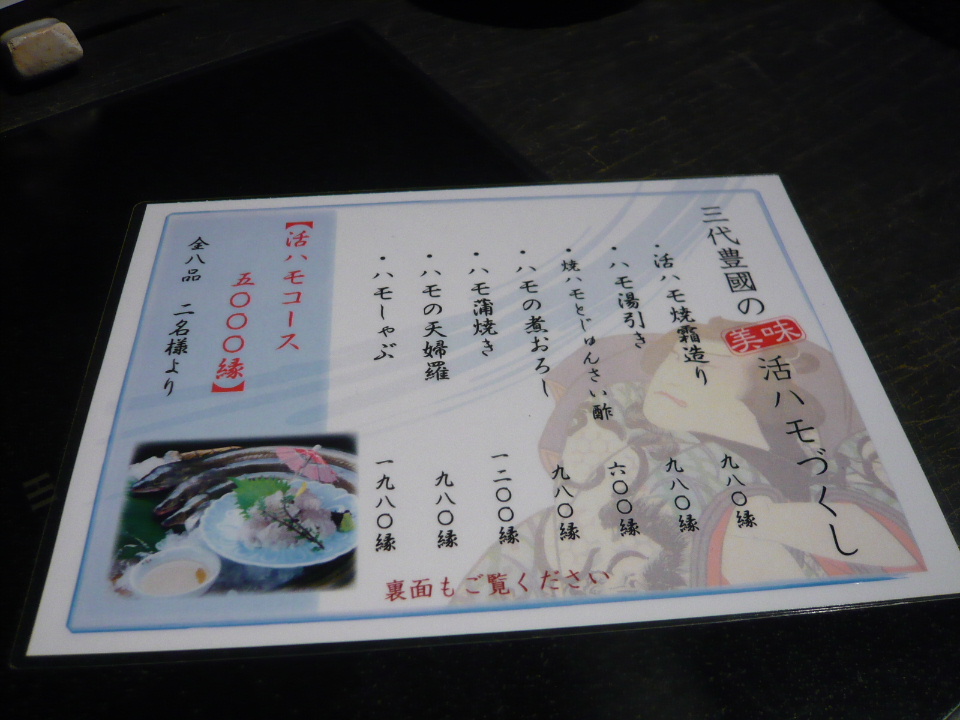 三代豊國の美味活ハモづくし
・活ハモ焼霜造り 九八〇縁
・ハモ湯引き 九八〇縁
・焼ハモとじゅんさい酢 六〇〇縁
・ハモの煮おろし 九八〇縁
・ハモ蒲焼き 一二〇〇縁
・ハモの天婦羅 九八〇縁
・ハモしゃぶ 一九八〇縁
【活ハモコース
五〇〇〇縁】
全八品 二名様より
裏面もご覧ください